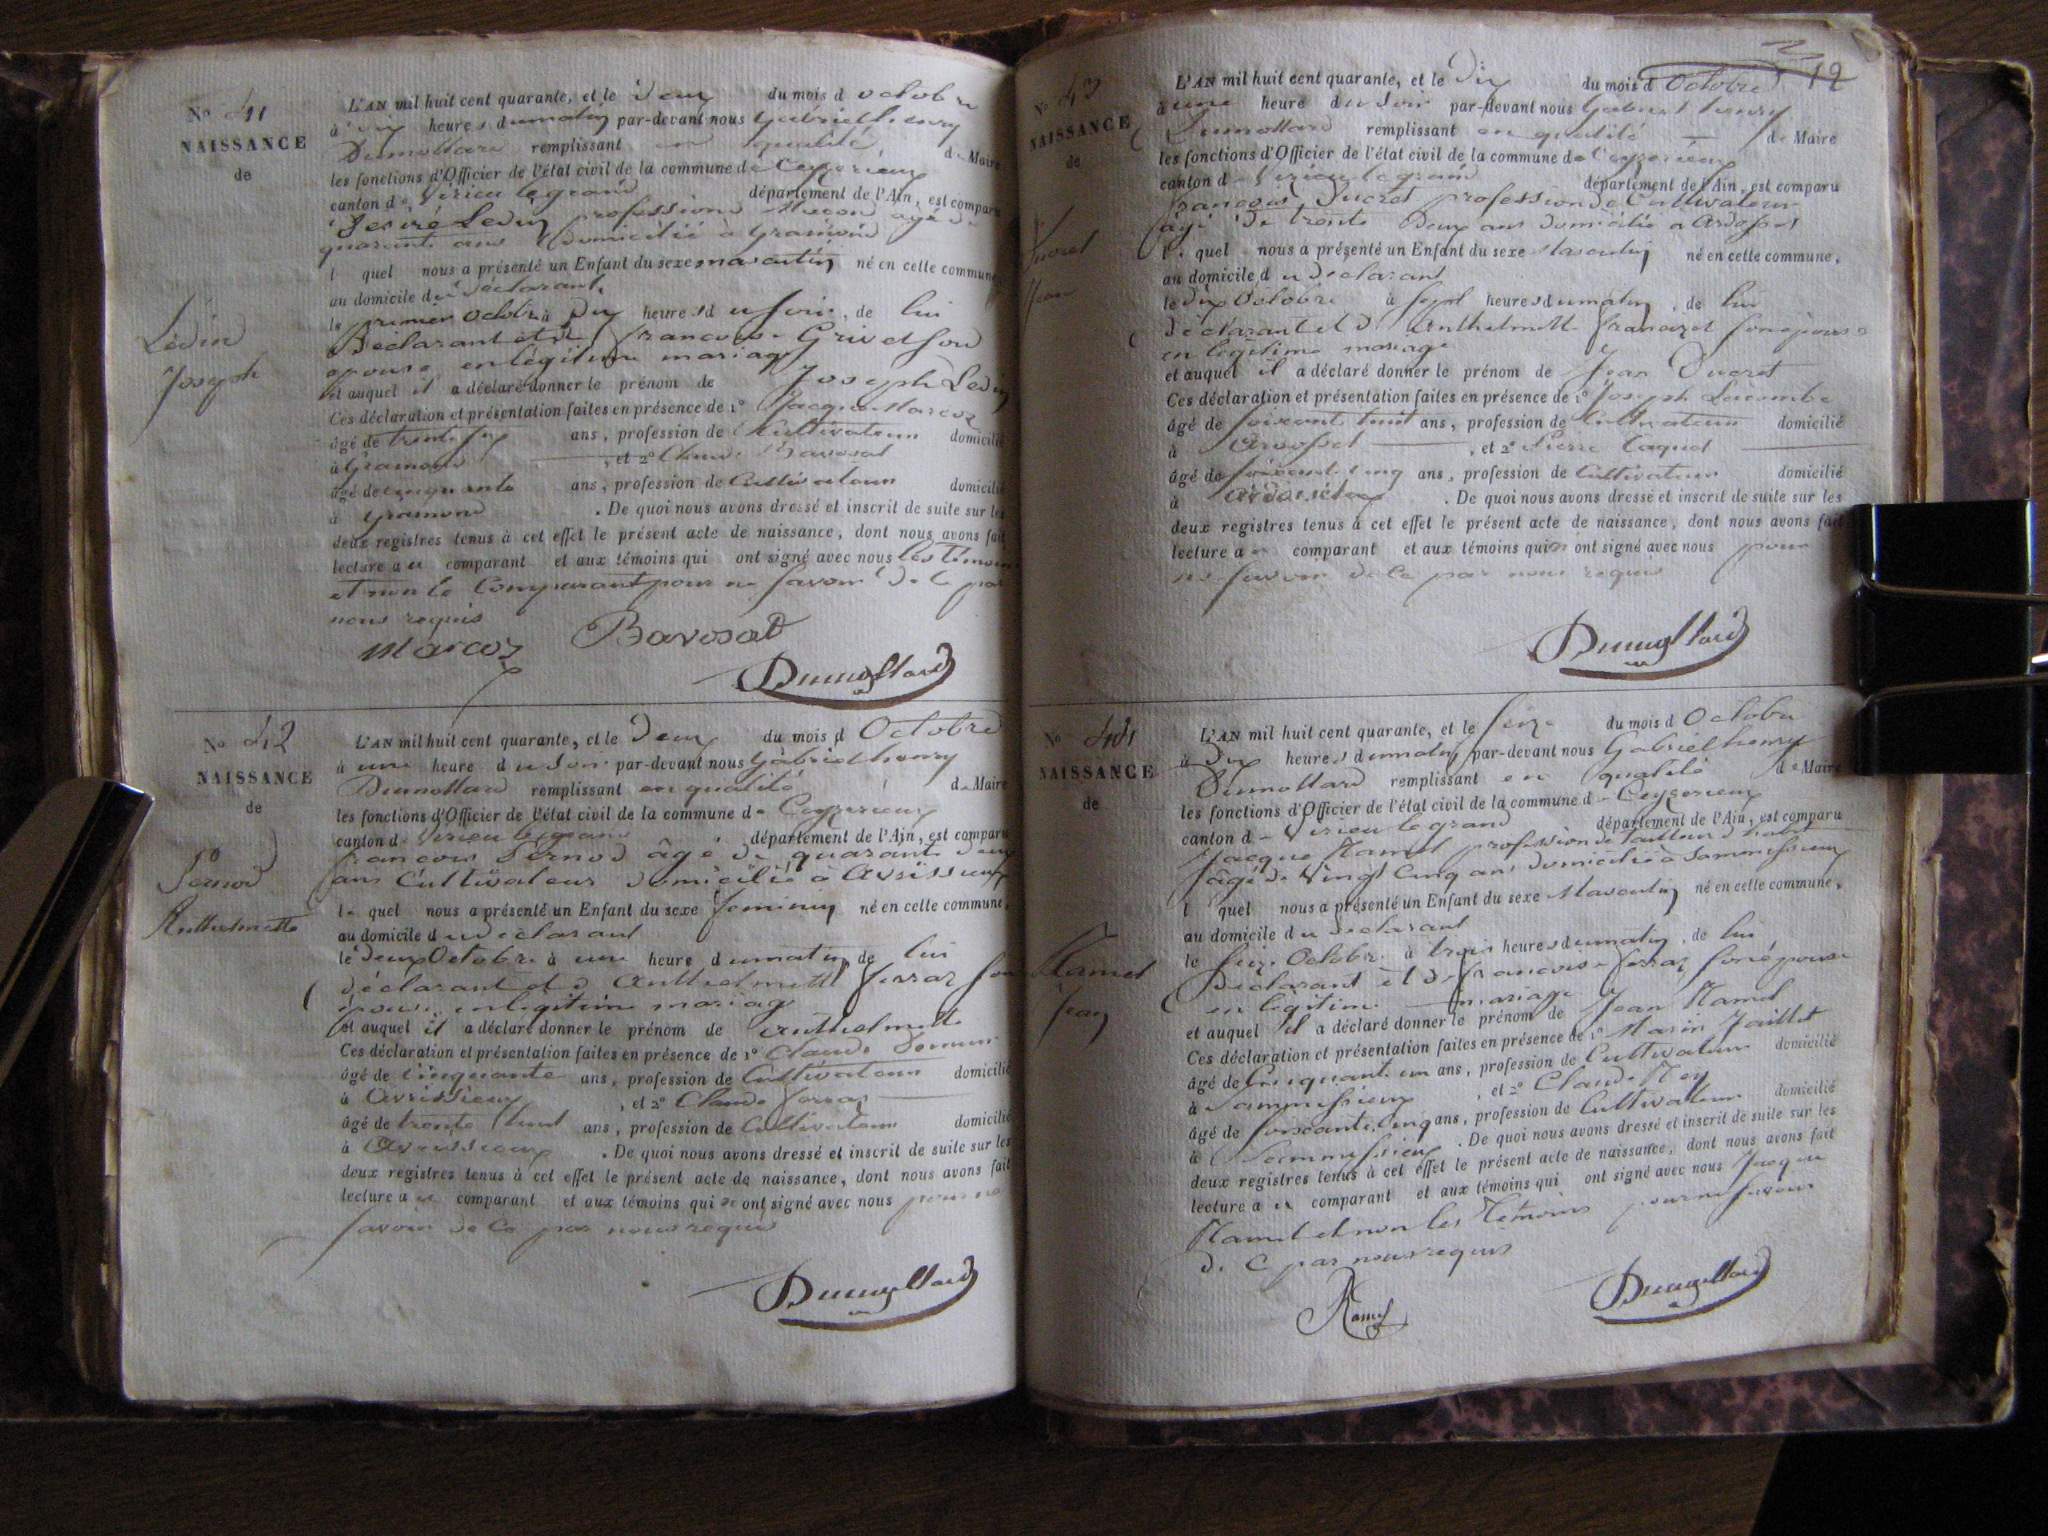 No 41
NAISSANCE
de
Lédin
Joseph
L'AN mil huit cent quarante, et le deux du mois d octobre
à dix heures du matin par-devant nous Gabriel henry
Dumollard remplissant en qualité de Maire
les fonctions d'Officier de l'état civil de la commune de Ceyzerieux
canton de Virieu le grand département de l'Ain, est comparu
Desiré Ledin profession de Maçon agé de
quarante ans domicilié à Gramond
l quel nous a présenté un Enfant du sexe masculin né en cette commune
au domicile du declarant
le premier octobre à dix heures du soir, de lui
Déclarant et de francoise Grivet son
epouse en légitime mariage
et auquel il a déclaré donner le prénom de Joseph Ledin
Ces déclaration et présentation faites en présence de 1o Jacque Marcoz
âgé de trente six ans, profession de Cultivateur domicilié
à Gramond , et 2o Claude Bavosat
âgé de cinquante ans, profession de Cultivateur domicilié
à Gramond . De quoi nous avons dressé et inscrit de suite sur les
deux registres tenus à cet effet le présent acte de naissance, dont nous avons fait
lecture au comparant et aux témoins qui ont signé avec nous les témoins
et non le Comparant pour ne savoir de le par
nous requis
Marcoz Bavosat
Dumollard
No 42
NAISSANCE
de
Pernod
Anthelmette
L'AN mil huit cent quarante, et le deux du mois d Octobre
à une heure du soir par-devant nous Gabriel henry
Dumollard remplissant en qualité de Maire
les fonctions d'Officier de l'état civil de la commune de Ceyzerieux
canton de Virieu le grand département de l'Ain, est comparu
francois Pernod âgé de quarante deux
ans Cultivateur domicilié à Avrissieux
le quel nous a présenté un Enfant du sexe feminin né en cette commune,
au domicile du déclarant
le deux Octobre à une heure du matin, de lui
déclarant et d Anthelmette ferraz son
épouse en legitime mariage
et auquel il a déclaré donner le prénom de Anthelmette
Ces déclaration et présentation faites en présence de 1o Claude
âgé de cinquante ans, profession de Cultivateur domicilié
à Avrissieux , et 2o Claude ferraz
âgé de trente huit ans, profession de Cultivateur domicilié
à Avrissieux . De quoi nous avons dressé et inscrit de suite sur les
deux registres tenus à cet effet le présent acte de naissance, dont nous avons fait
lecture au comparant et aux témoins qui ne ont signé avec nous pour ne
savoir de Ce par nous requis
Dumollard
12
No 43
NAISSANCE
de
Ducret
Jean
L'AN mil huit cent quarante, et le Dix du mois d Octobre
à une heure du soir par-devant nous Gabriel henry
Dumollard remplissant en qualité de Maire
les fonctions d'Officier de l'état civil de la commune de Ceyzerieux
canton de Virieu le grand département de l'Ain, est comparu
francois Ducret profession de Cultivateur
âgé de trente Deux ans domicilié a Ardosset
le quel nous a présenté un Enfant du sexe Masculin né en cette commune,
au domicile du Declarant
le dix Octobre à sept heures du matin, de lui
déclarant et d Anthelmette son épouse
en legitime mariage
et auquel il a déclaré donner le prénom de Jean Ducret
Ces déclaration et présentation faites en présence de 1o Joseph Lacombe
âgé de soixant huit ans, profession de Cultivateur domicilié
à Ardosset , et 2o Pierre Caquet
âgé de soixante cinq ans, profession de Cultivateur domicilié
à . De quoi nous avons dressé et inscrit de suite sur les
deux registres tenus à cet effet le présent acte de naissance, dont nous avons fait
lecture au comparant et aux témoins qui n ont signé avec nous pour
ne savoir de Ce par nous requis
Dumollard
No 44
NAISSANCE
de
Hamel
Jean
L'AN mil huit cent quarante, et le seize du mois d Octobre
à Dix heures du matin par-devant nous Gabriel henry
Dumollard remplissant en qualité de Maire
les fonctions d'Officier de l'état civil de la commune de Ceyzerieux
canton de Virieu le grand département de l'Ain, est comparu
Jacque Hamel profession de tailleur d habit
âgé de Vingt Cinq ans domicilié à Sammissieux
l quel nous a présenté un Enfant du sexe Masculin né en cette commune,
au domicile du Déclarant
le seize Octobre à trois heures du matin, de lui
Déclarant et de francoise ferraz son épouse
en legitime mariage
et auquel il a déclaré donner le prénom de Jean Hamel
Ces déclaration et présentation faites en présence de 1o Marin Jaillet
âgé de Cinquante un ans, profession de Cultivateur domicilié
à Sammissieux , et 2o Claude Rey
âgé de soixante Cinq ans, profession de Cultivateur domicilié
à Sammissieux . De quoi nous avons dressé et inscrit de suite sur les
deux registres tenus à cet effet le présent acte de naissance, dont nous avons fait
lecture au comparant et aux témoins qui ont signé avec nous Jacque
Hamel et non les Témoins pour ne savoir
de C par nous requis
Hamel
Dumollard